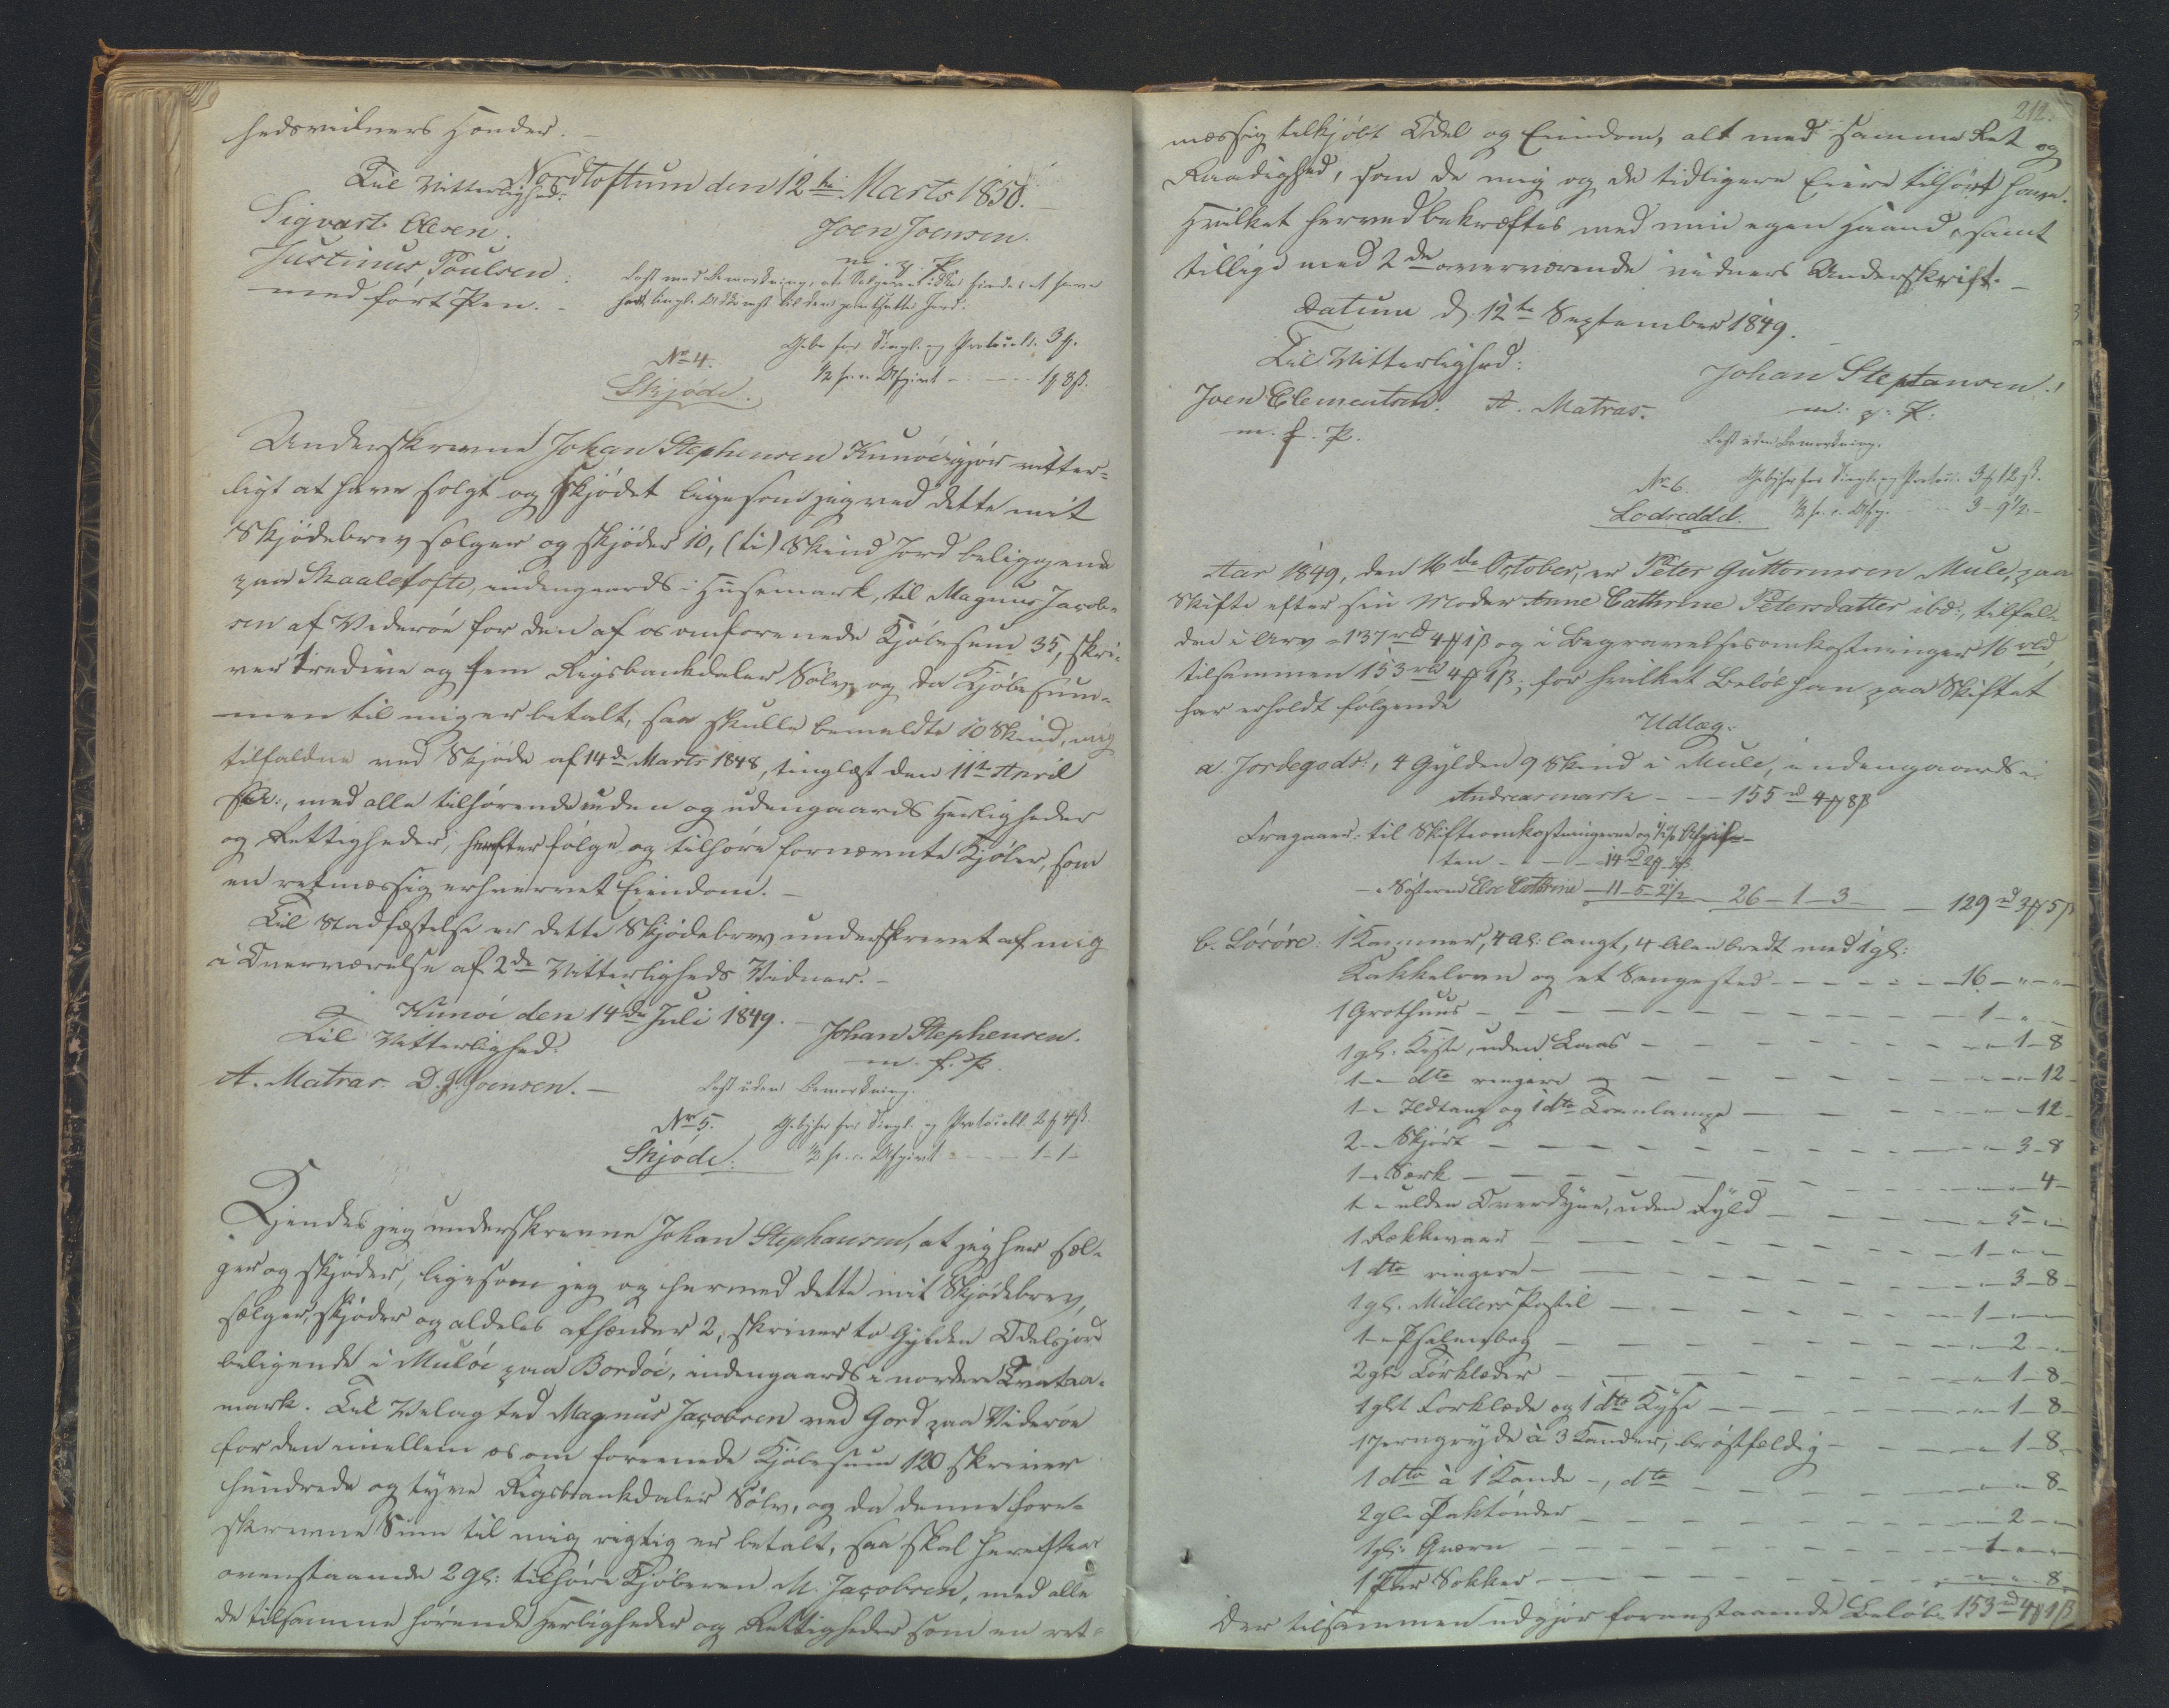 hedsvidners Hænder. –
Nordtoftum den 12te Marts 1850. –
Til Vitterlighed:
Sigvart Olesen.
Joen Joensen.
Justinus Poulsen
m. f. P.
med ført Pen. –
Læst med Bemærkning, at Sælgeren ikke findes at have
havt tingl. Adkomst til den pantsatte Jord.
Gebr for Tingl. og Protocoll. 3 ℳ.
½ pr. c. Afgivt – – – – 1 ℳ 8 ß.
No 4.
Skjøde.
Underskrevne Johan Stephensen Kunøe gjør vitter-
ligt at have solgt og skjødet ligesom jeg ved dette mit
Skjødebrev sælger og skjøder 10, (ti) Skind Jord beliggende
paa Skaaletofte, indengaards i Husemark, til Magnus Jacob-
sen af Viderøe for den af os omforenede Kjøbesum 35, skri-
ver tredive og fem Rigsbankdaler Sølv, og da Kjøbesum-
men til mig er betalt, saa skulle bemeldte 10 Skind, mig
tilfaldne ved Skjøde af 14de Marts 1848, tinglæst den 11te April
s. A:, med alle tilhørende inden og udengaards Herligheder
og Rettigheder, herefter følge og tilhøre fornævnte Kjøber, som
en retmæssig erhvervet Eiendom. –
Til Stadfæstelse er dette Skjødebrev underskrevet af mig
i Overværelse af 2de Vitterligheds Vidner. –
Kunøe den 14de Juli 1849. –
Til Vitterlighed:
Johan Stephensen.
m. f. P.
A. Matras. D. J. Joensen. –
Læst uden Bemærkning.
No 5.
Gebyhr for Tingl. og Protocoll. 2 ℳ 4 ß.
Skjøde.
½ pr. c. Afgivt – – – – 1 – 1 –
Kjendes jeg underskrevne Johan Stephansen, at jeg har sæl-
ger og skjøder, ligesom jeg og hermed dette mit Skjødebrev,
sælger, skjøder og aldeles afhænder 2, skriver to Gylden Odelsjord
beliggende i Muløe paa Bordøe, indengaards i nordere Traataa-
mark. Til Velagted Magnus Jacobsen ved Gord paa Viderøe
for den imellem os om foreenede Kjøbesum 120 skriver
hundrede og tyve Rigsbankdaler Sølv, og da denne fore-
skrevne Sum til mig rigtig er betalt, saa skal herefter
ovenstaaende 2 Gl: tilhøre Kjøberen M. Jacobsen, med alle
de tilsamme hørende Herligheder og Rettigheder som en ret-
212.
mæssig tilkjøbt Odel og Eiendom, alt med samme Ret og
Raadighed, som de mig og de tidligere Eiere tilhørt have.
Hvilket herved bekræftes med min egen Haand, samt
tillige med 2de overværende vidners Underskrift. –
Datum d. 12te September 1849.
Til Vitterlighed:
Johan Steptansen.
Joen Clementsen. A. Matras.
m. p. P.
m. f. P.
Læst uden Bemærkning.
No 6.
Gebyhr for Tingl. og Protoc. 3 ℳ 12 ß.
Lodseddel.
½ pr. c. Afg. – – 3 – 9½ –
Aar 1849, den 16de October, er Peter Guttormsen Mule, paa
Skifte efter sin Moder Anne Cathrine Petersdatter ibd:, tilfal-
den i Arv – 137 rd 4 ℳ 1 ß og i Begravelsesomkostninger 16 rd
tilsammen 153 rd 4 ℳ 1 ß; for hvilket Beløb han paa Skiftet
har erholdt følgende
Udlæg.
a. Jordegods:, 4 Gylden 9 Skind i Mule, indengaards i
Andreasmark – – 155 rd 4 ℳ 8 ß
Fragaaer: til Skifteomkostningerne og ½ % Afgif-
ten – – – – 14 rd 2 ℳ
– Søsteren Else Cathrine – 11 – 5 – 2½ – 26 – 1 – 3 – – 129 rd 3 ℳ 5 ß
b. Løsøre: 1 Kammer, 4 Al: langt, 4 Alen bredt med 1 gl:
Kakkelovn og et Sengested – – – – – 16 – „ – „ –
1 Grothuus – – – – – 1 – „ – „
1 gl: Kiste, uden Laas – – – – – „ – 1 – 8
1 – „ dto ringere – – – – – „ – „ – 12 –
1 – „ Ildtang og 1 dto Tranlampe – – – – „ – „ – 12 –
2 – „ Skjørt – – – – – „ – 3 – 8
1 – „ Særk – – – – – „ – „ – 4 –
1 – „ ulden Overdyne, uden Fyld – – – – „ – 5 – „ –
1 Rækkevaar – – – – – 1 – „ – „
1 dto ringere – – – – – „ – 3 – 8 –
1 gl. Müllers Postil – – – – – 1 – „ –
1 – „ Psalmebog – – – – – „ – 2 – „
2 gle Tørklæder – – – – – „ – 1 – 8 –
1 glt Forklæde og 1 dto Kyse – – – – „ – 1 – 8 –
1 Jerngryde à 3 Kander, brøstfældig – – – – „ – 1 – 8 –
1 dto à 1 Kande –, dto – – – – „ – „ – 8 –
2 gle Paktønder – – – – – „ – 2 – „
1 gl: Qværn – – – – – „ – 1 – „ –
1 Par Sokker – – – – – „ – „ – 8
Der tilsammen udgjør foranstaaende Beløb. 153 rd 4 ℳ 1 ß